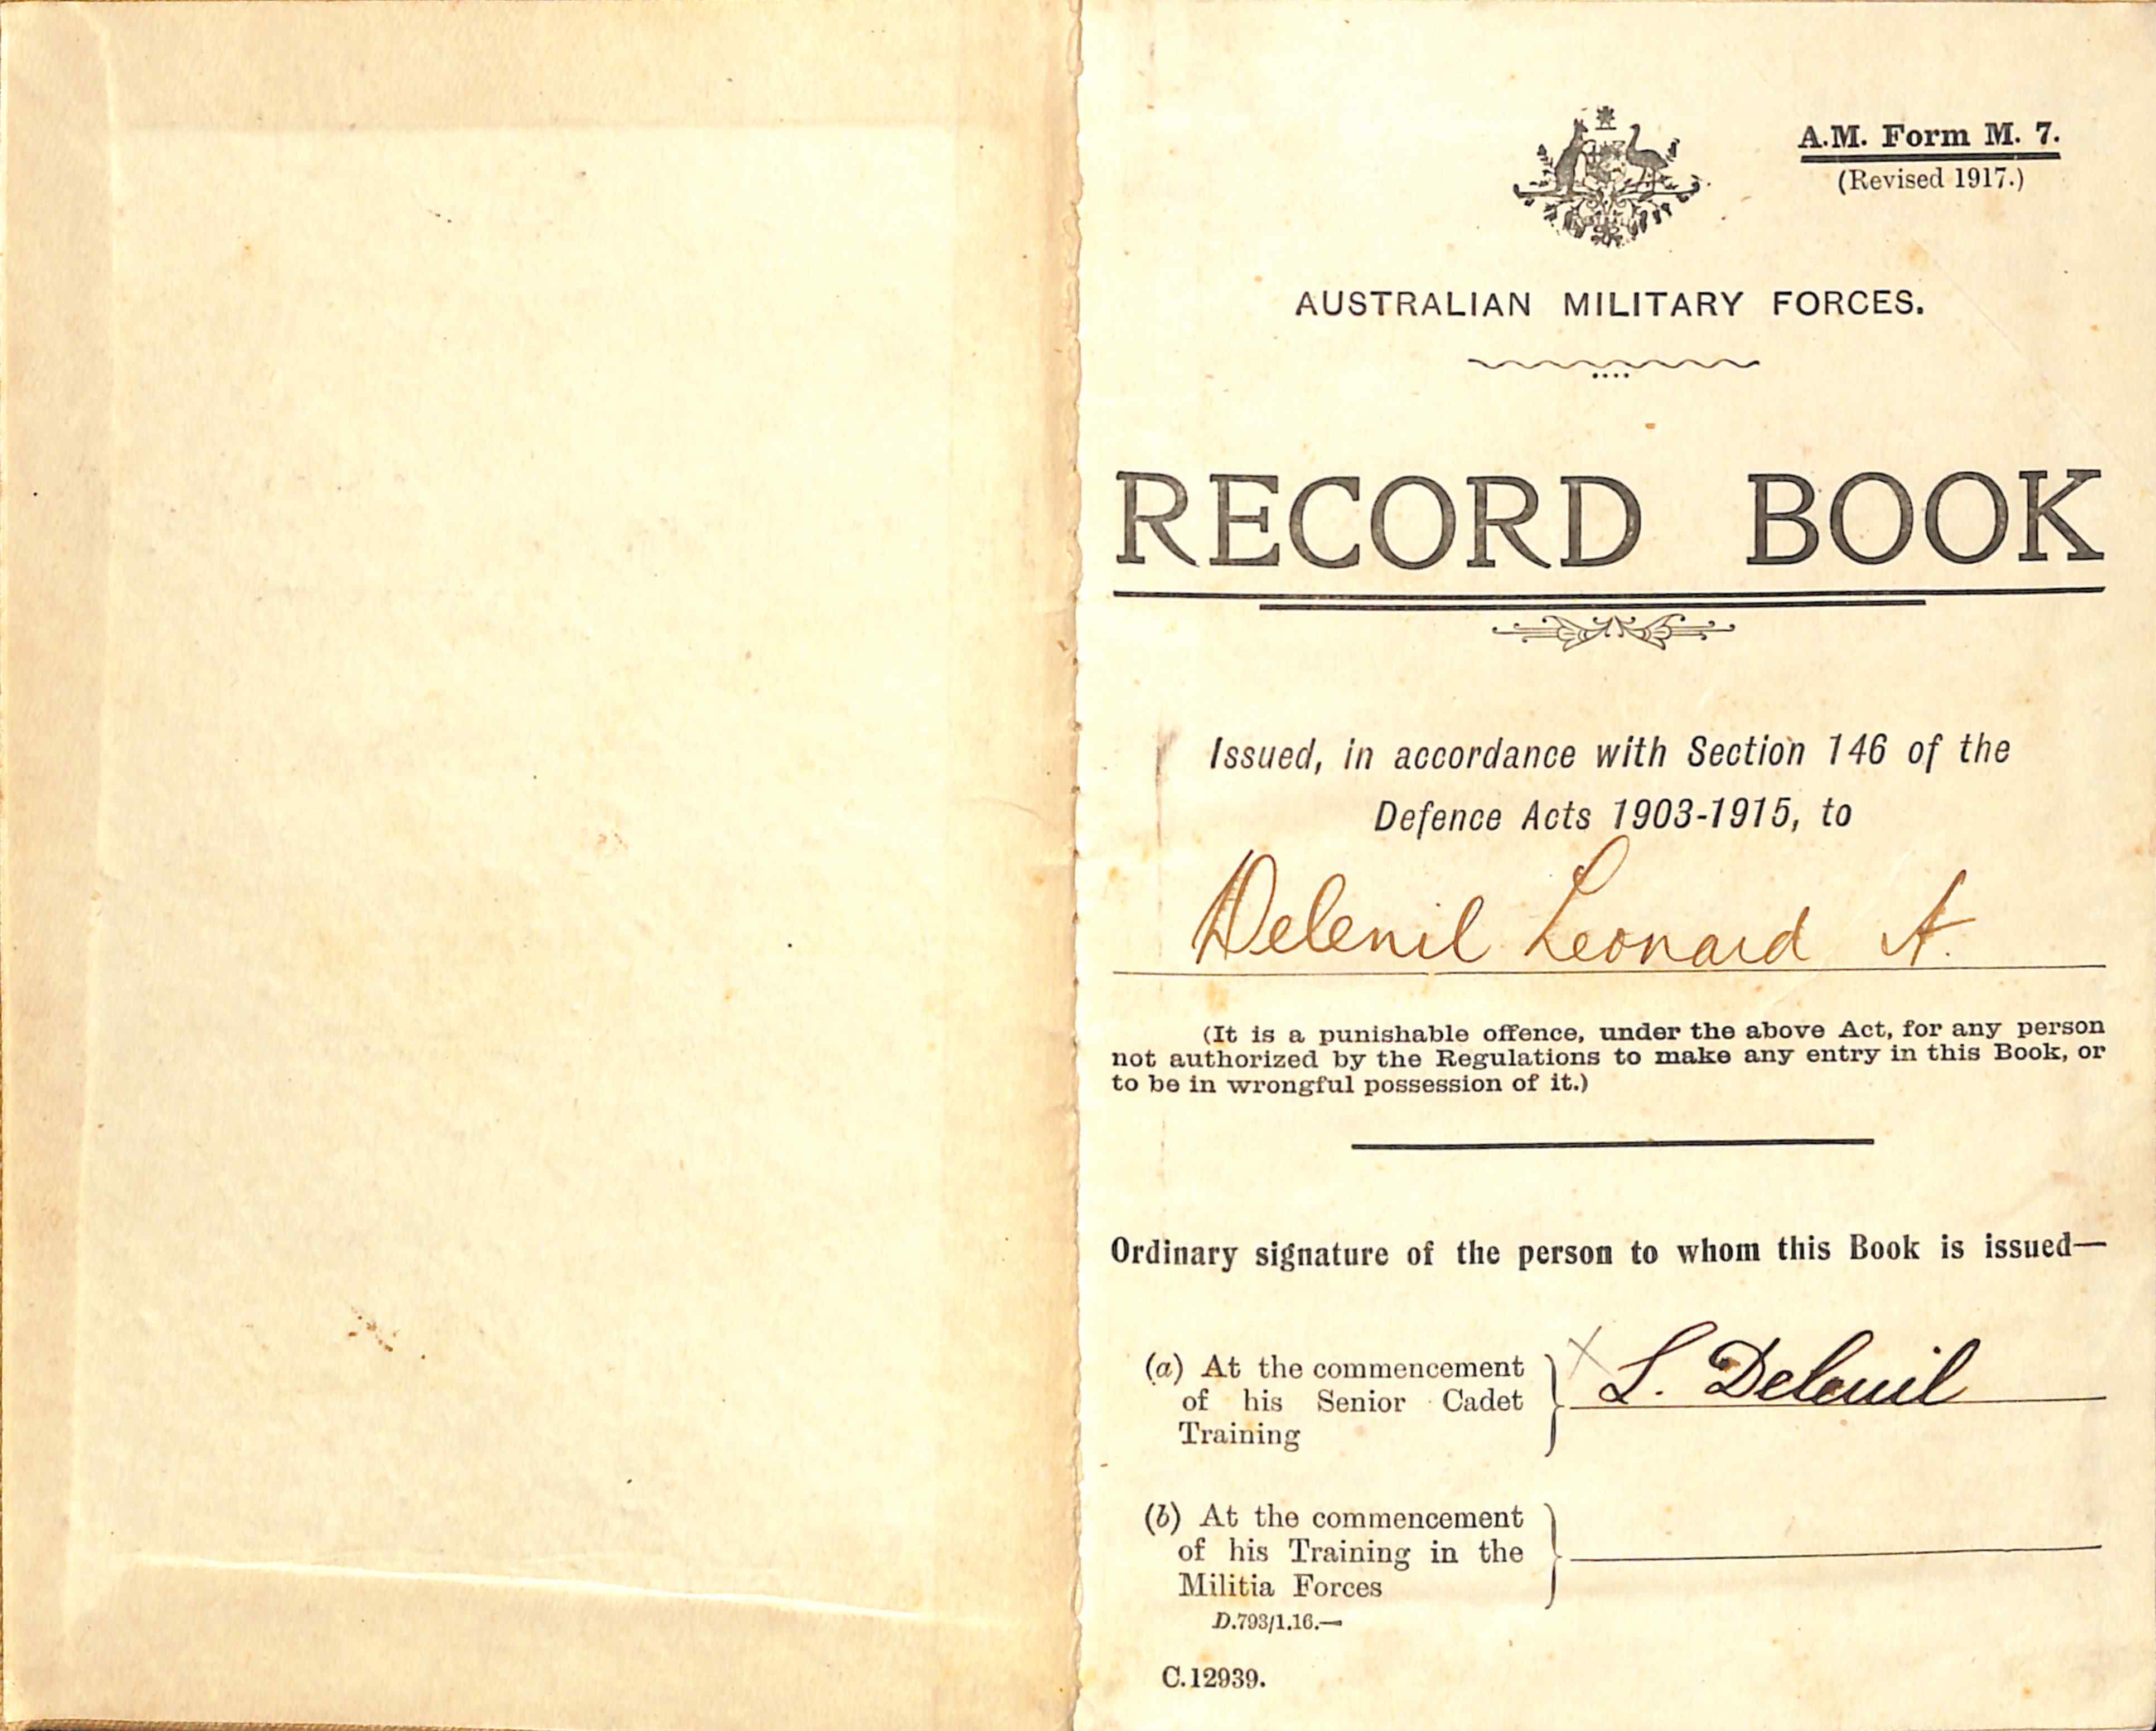 A.M. Form M. 7.
(Revised 1917.)
AUSTRALIAN MILITARY FORCES.
RECORD BOOK
Issued, in accordance with Section 146 of the
Defence Acts 1903-1915, to
Delenil Leonard A.
(It is a punishable offence, under the above Act, for any person
not authorized by the Regulations to make any entry in this Book, or
to be in wrongful possession of it.)
Ordinary signature of the person to whom this Book is issued—
(a) At the commencement
of his Senior Cadet
Training
X L. Delenil
(b) At the commencement
of his Training in the
Militia Forces
D.793/1.16.—
C.12939.